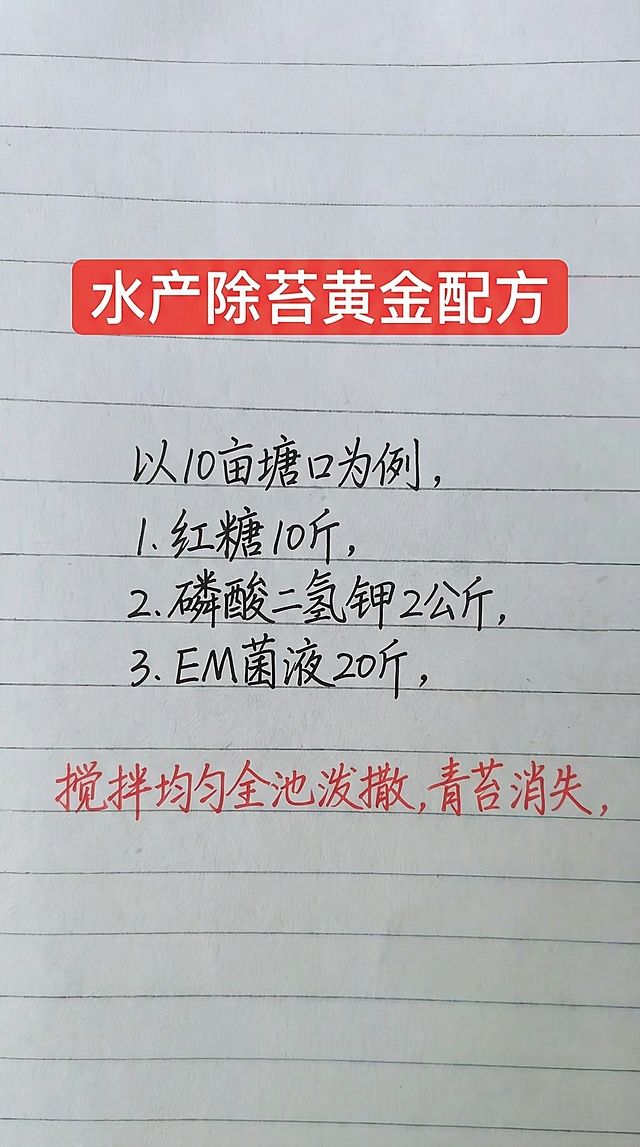 水产除苔黄金配方
以10亩塘口为例，
1.红糖10斤，
2.磷酸二氢钾2公斤，
3.EM菌液20斤，
搅拌均匀全池泼撒，青苔消失，